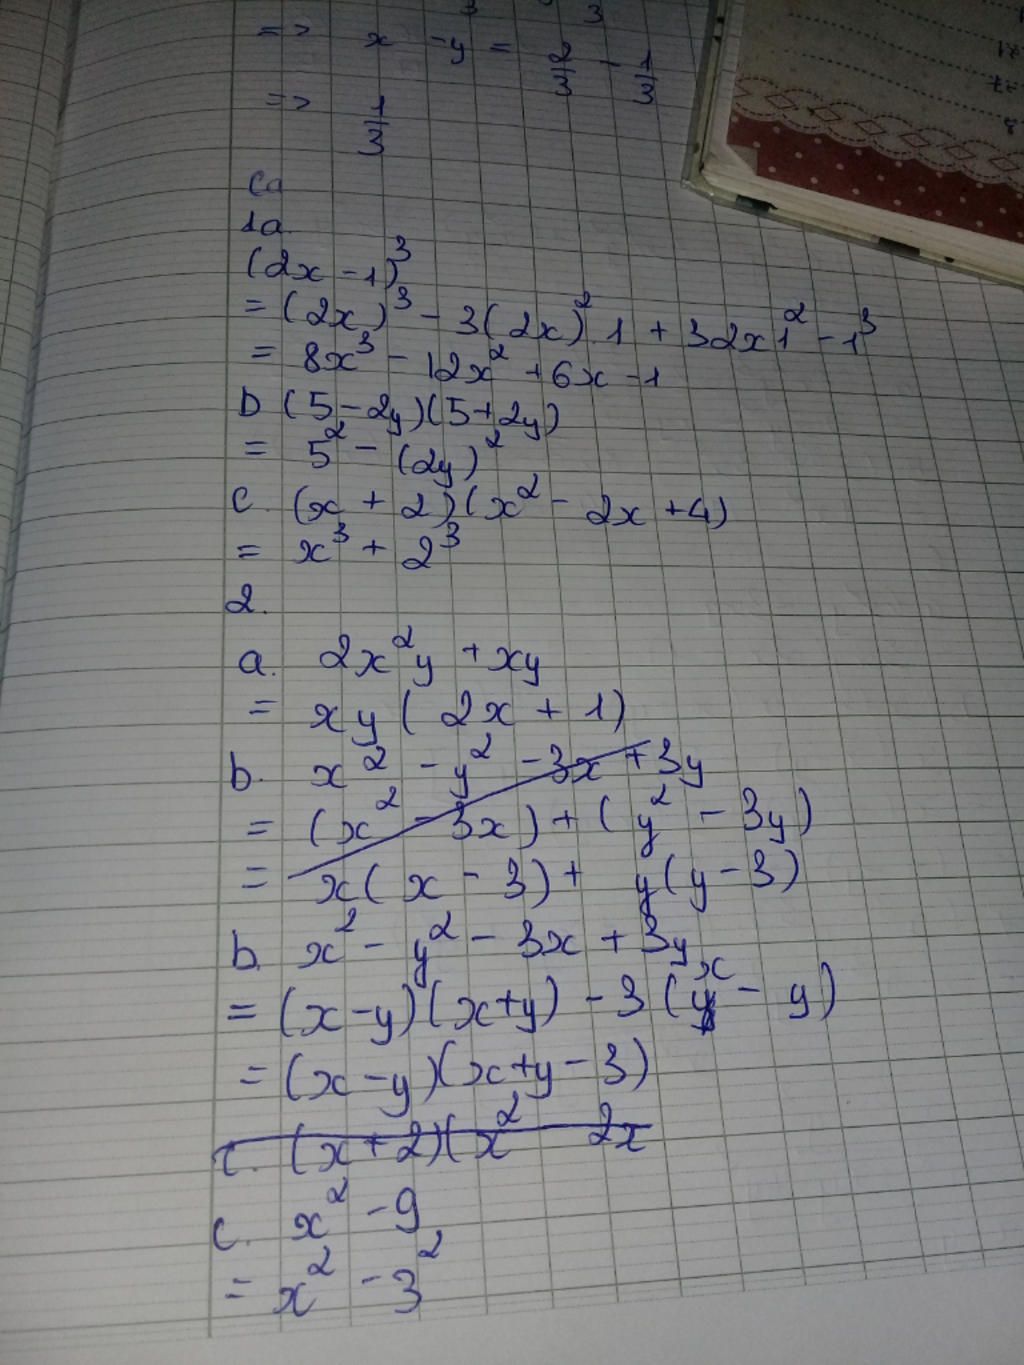 => x - y = 2/3 - 1/3
=> 1/3
Ca
1a
(2x - 1)³
= (2x)³ - 3(2x)² 1 + 3 2x 1² - 1³
= 8x³ - 12x² + 6x - 1
b (5 - 2y)(5 + 2y)
= 5² - (2y)²
c. (x + 2)(x² - 2x + 4)
= x³ + 2³
2.
a. 2x²y + xy
= xy (2x + 1)
b. x² - y² - 3x + 3y
= (x² - 3x) + (y² - 3y)
= x(x - 3) + y(y - 3)
b. x² - y² - 3x + 3y
= (x - y)(x + y) - 3(x - y)
= (x - y)(x + y - 3)
c. (x + 2)(x² 2x
c. x² - 9
= x² - 3²